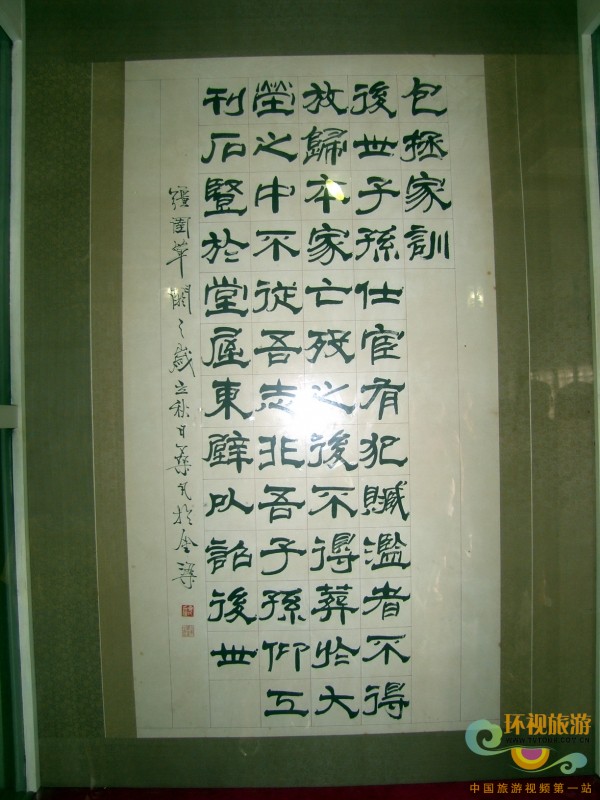 包拯家訓
後世子孫仕宦有犯贓濫者不得
放歸本家亡殁之後不得葬於大
塋之中不從吾志非吾子孫仰工
刊石豎於堂屋東壁以詔後世
之歲立秋日於金
环视旅游
WWW.TVTOUR.COM.CN
中国旅游视频第一站